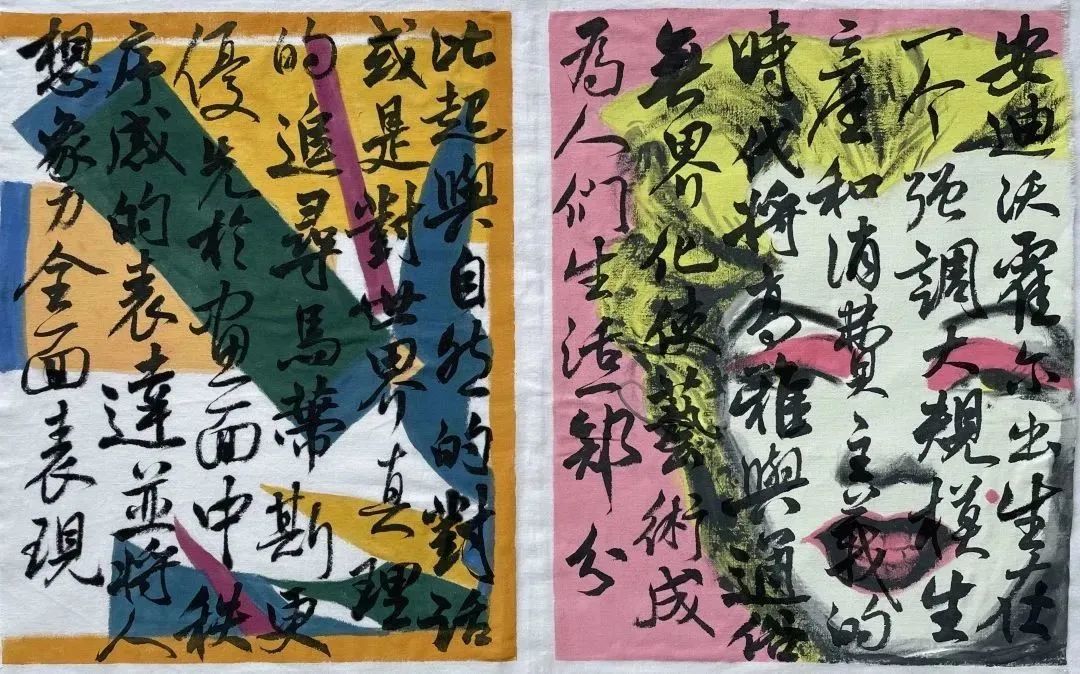 安迪沃霍尔出生在
一个强調大規模生
産和消費主義的
時代将高雅與通俗
無界化使藝術成
為人們生活一部分
比起與自然的對话
或是對世界真理
的追尋馬蒂斯更
優先於畫面中秩
序感的表達並将人
想象力全面表現